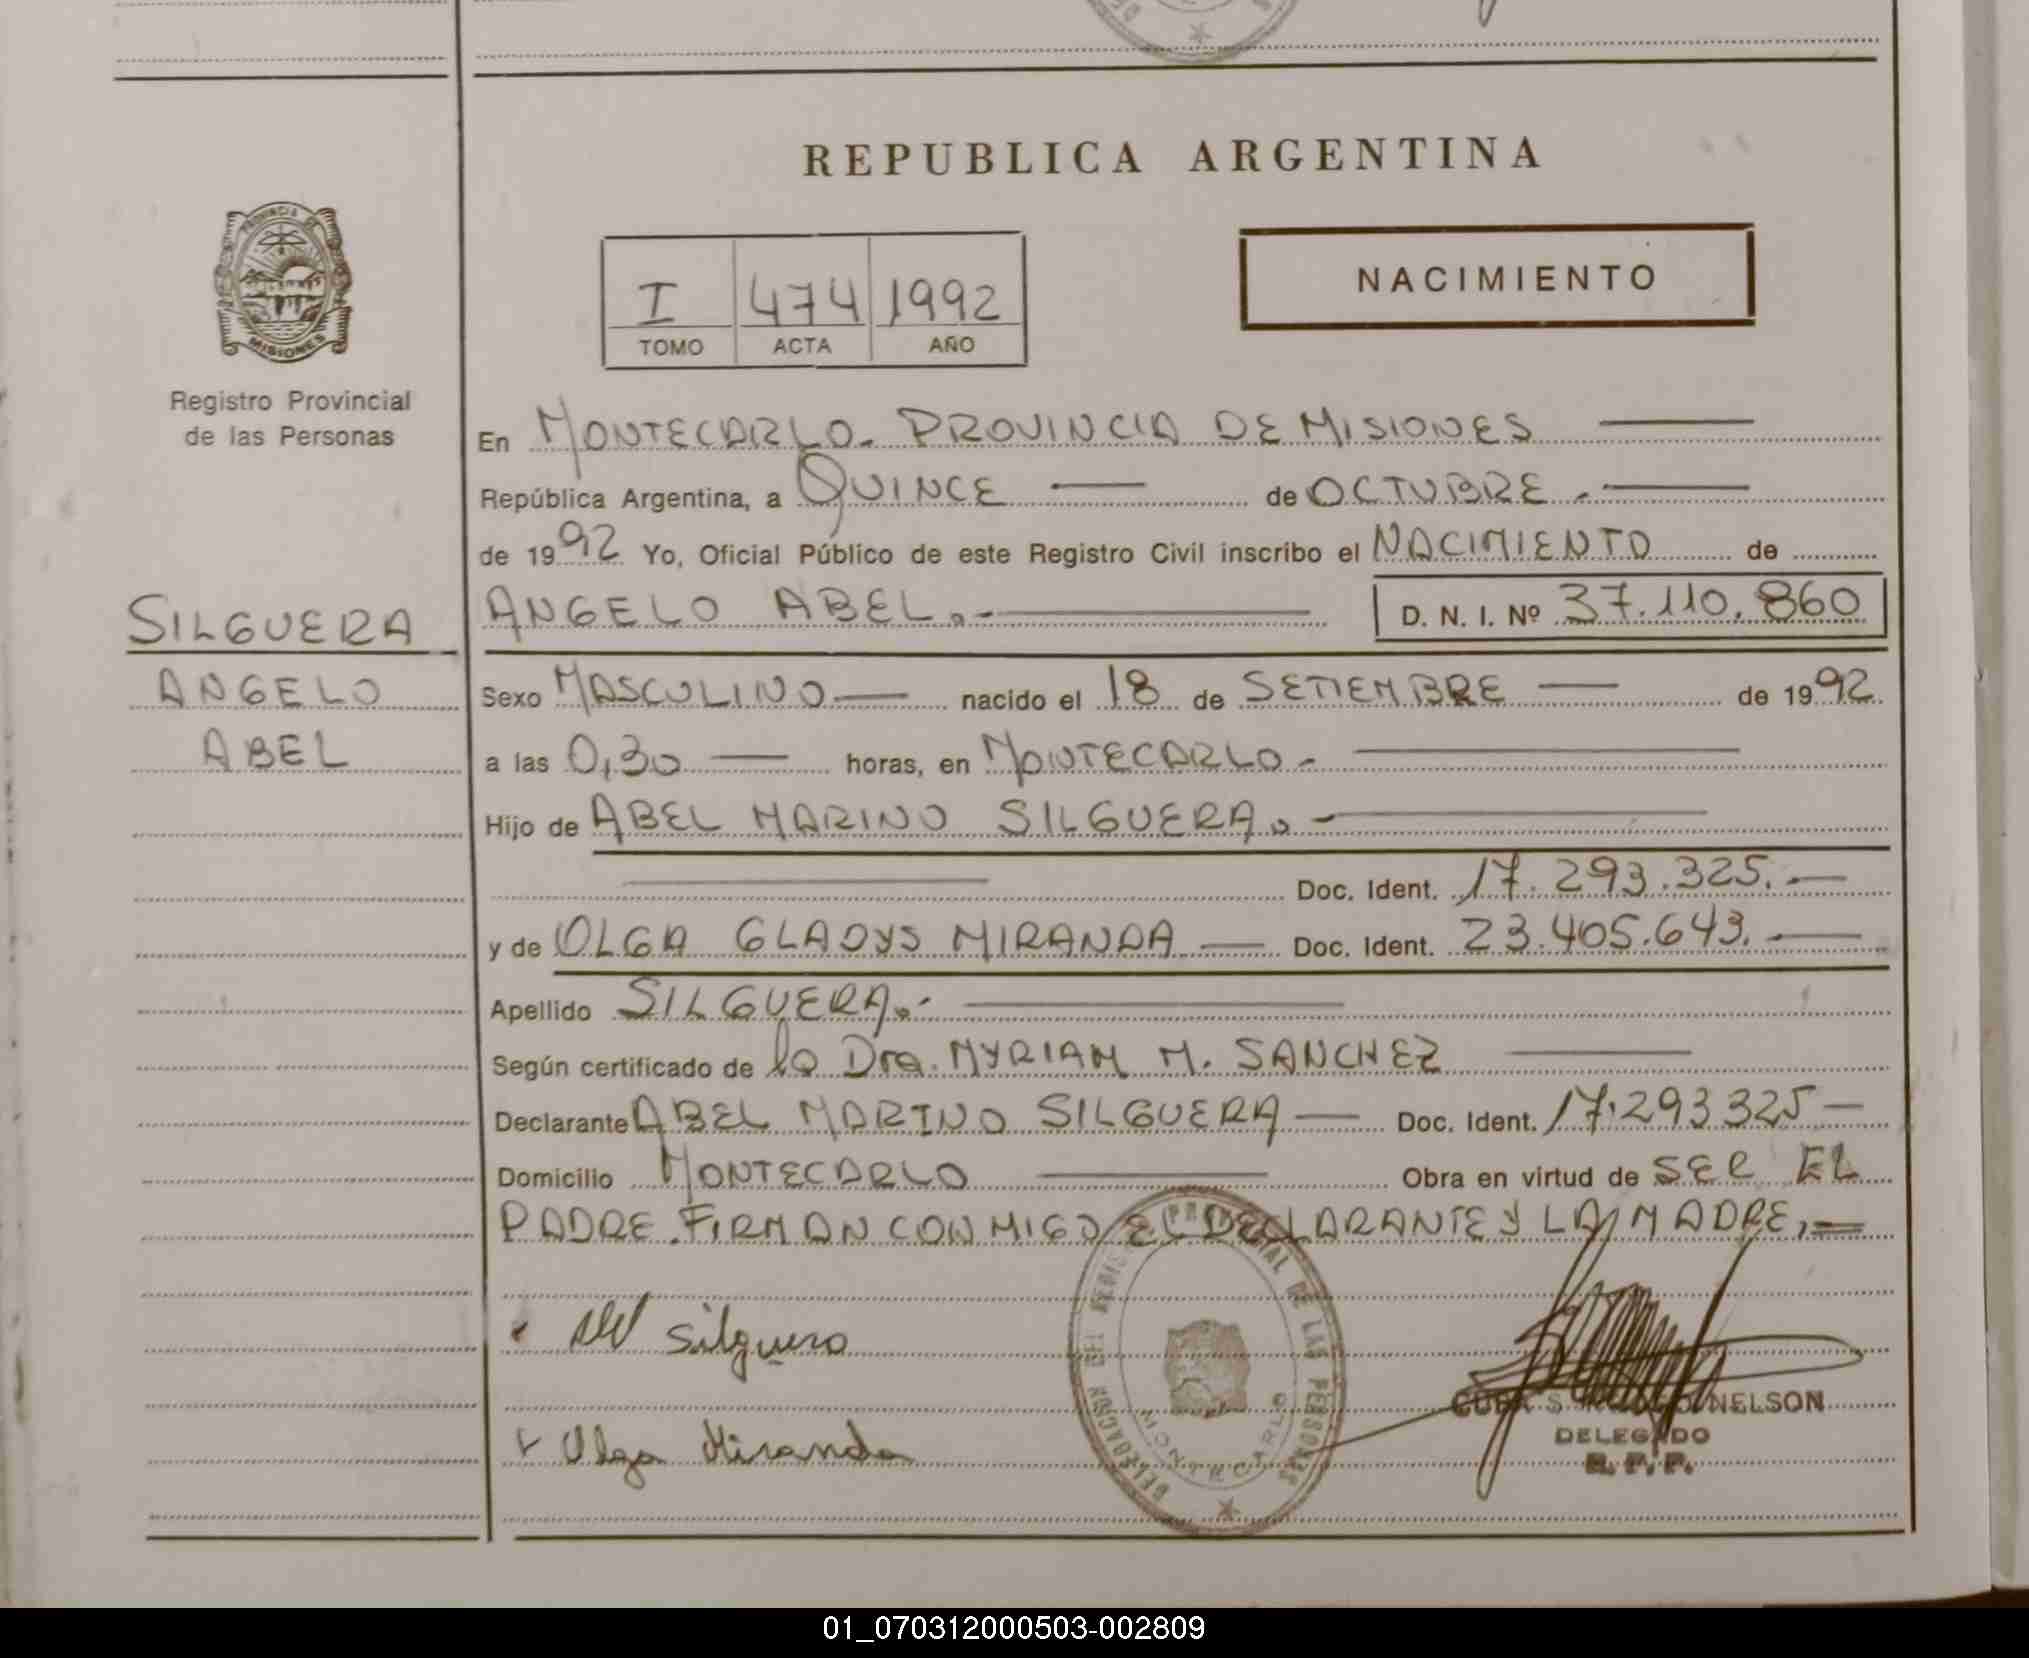 REPUBLICA ARGENTINA
PROVINCIA DE
MISIONES
Registro Provincial
de las Personas
I 474 1992
TOMO ACTA AÑO
NACIMIENTO
En MONTECARLO. PROVINCIA DE MISIONES
República Argentina, a QUINCE de OCTUBRE.
de 1992 Yo, Oficial Público de este Registro Civil inscribo el NACIMIENTO de
ANGELO ABEL.- D. N. I. Nº 37.110.860
SILGUERA
ANGELO
ABEL
Sexo MASCULINO nacido el 18 de SETIEMBRE de 1992.
a las 0,30 horas, en MONTECARLO.-
Hijo de ABEL MARINO SILGUERA.-
Doc. Ident. 17.293.325.-
y de OLGA GLADYS MIRANDA Doc. Ident. 23.405.643.-
Apellido SILGUERA.-
Según certificado de la Dra. MYRIAM M. SANCHEZ
Declarante ABEL MARINO SILGUERA Doc. Ident. 17.293.325
Domicilio MONTECARLO Obra en virtud de SER EL
PADRE. FIRMAN CONMIGO EL DECLARANTE Y LA MADRE.
Silguera
Olga Miranda
DELEGACION DEL REGISTRO PROVINCIAL DE LAS PERSONAS
MONTECARLO
NELSON
DELEGADO
R. P. P.
01_070312000503-002809